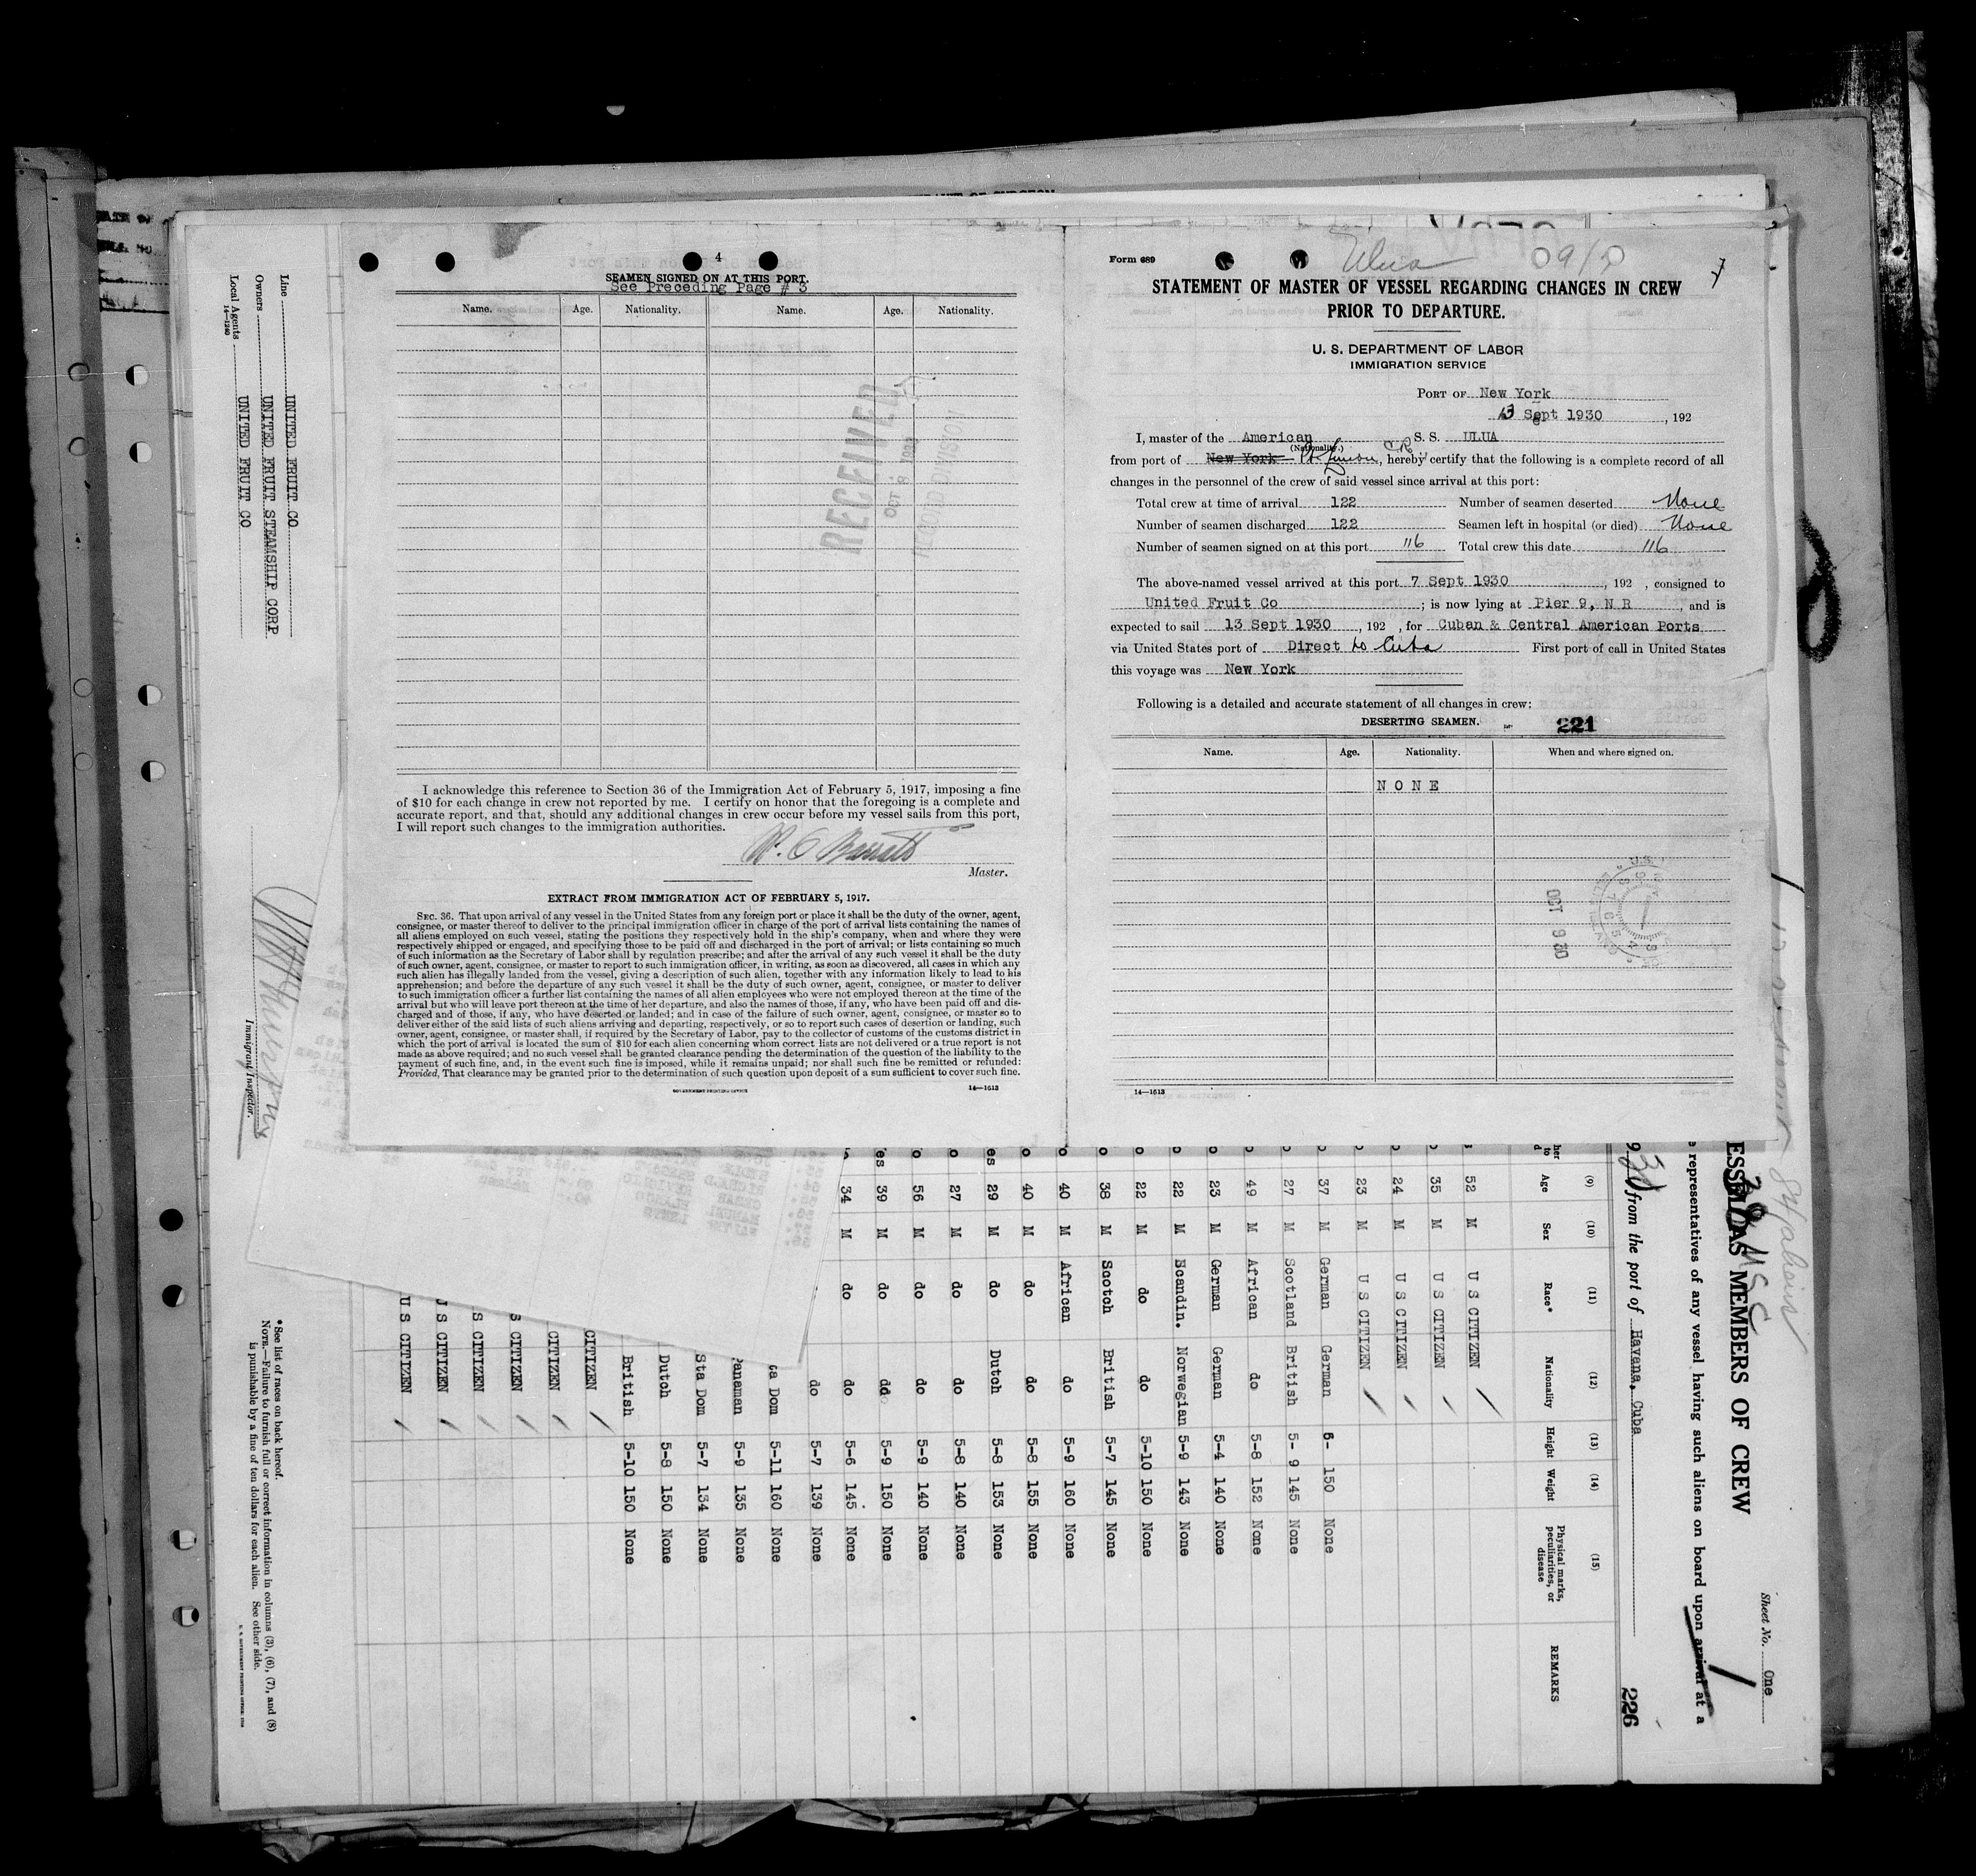 4
SEAMEN SIGNED ON AT THIS PORT.
See Preceding Page # 3
Name. Age. Nationality. Name. Age. Nationality.
RECEIVED
OCT 8 1930
RECORD DIVISION
I acknowledge this reference to Section 36 of the Immigration Act of February 5, 1917, imposing a fine
of $10 for each change in crew not reported by me. I certify on honor that the foregoing is a complete and
accurate report, and that, should any additional changes in crew occur before my vessel sails from this port,
I will report such changes to the immigration authorities.
W. C Barrett
Master.
EXTRACT FROM IMMIGRATION ACT OF FEBRUARY 5, 1917.
SEC. 36. That upon arrival of any vessel in the United States from any foreign port or place it shall be the duty of the owner, agent,
consignee, or master thereof to deliver to the principal immigration officer in charge of the port of arrival lists containing the names of
all aliens employed on such vessel, stating the positions they respectively hold in the ship's company, when and where they were
respectively shipped or engaged, and specifying those to be paid off and discharged in the port of arrival; or lists containing so much
of such information as the Secretary of Labor shall by regulation prescribe; and after the arrival of any such vessel it shall be the duty
of such owner, agent, consignee, or master to report to such immigration officer, in writing, as soon as discovered, all cases in which any
such alien has illegally landed from the vessel, giving a description of such alien, together with any information likely to lead to his
apprehension; and before the departure of any such vessel it shall be the duty of such owner, agent, consignee, or master to deliver
to such immigration officer a further list containing the names of all alien employees who were not employed thereon at the time of the
arrival but who will leave port thereon at the time of her departure, and also the names of those, if any, who have been paid off and dis-
charged and of those, if any, who have deserted or landed; and in case of the failure of such owner, agent, consignee, or master so to
deliver either of the said lists of such aliens arriving and departing, respectively, or so to report such cases of desertion or landing, such
owner, agent, consignee, or master shall, if required by the Secretary of Labor, pay to the collector of customs of the customs district in
which the port of arrival is located the sum of $10 for each alien concerning whom correct lists are not delivered or a true report is not
made as above required; and no such vessel shall be granted clearance pending the determination of the question of the liability to the
payment of such fine, and, in the event such fine is imposed, while it remains unpaid; nor shall such fine be remitted or refunded:
Provided, That clearance may be granted prior to the determination of such question upon deposit of a sum sufficient to cover such fine.
GOVERNMENT PRINTING OFFICE 14—1613
Form 689
Ulua
STATEMENT OF MASTER OF VESSEL REGARDING CHANGES IN CREW
PRIOR TO DEPARTURE.
U. S. DEPARTMENT OF LABOR
IMMIGRATION SERVICE
PORT OF New York
13 Sept 1930, 192
I, master of the American S. S. ULUA
(Nationality.)
from port of New York Pt Limon, C R, hereby certify that the following is a complete record of all
changes in the personnel of the crew of said vessel since arrival at this port:
Total crew at time of arrival 122 Number of seamen deserted None
Number of seamen discharged 122 Seamen left in hospital (or died) None
Number of seamen signed on at this port 116 Total crew this date 116
The above-named vessel arrived at this port 7 Sept 1930, 192 , consigned to
United Fruit Co ; is now lying at Pier 9, N R, and is
expected to sail 13 Sept 1930, 192 , for Cuban & Central American Ports
via United States port of Direct to Cuba First port of call in United States
this voyage was New York
Following is a detailed and accurate statement of all changes in crew:
DESERTING SEAMEN. 221
Name. Age. Nationality. When and where signed on.
NONE
OCT 9 30
14—1613
Line UNITED FRUIT CO
Owners UNITED FRUIT STEAMSHIP CORP
Local Agents UNITED FRUIT CO
14—1240
Immigrant Inspector.
Sheet No. One
MEMBERS OF CREW
representatives of any vessel having such aliens on board upon arrival at a
from the port of Havana, Cuba
226
(9) (10) (11) (12) (13) (14) (15)
Age Sex Race* Nationality Height Weight Physical marks, peculiarities, or disease REMARKS
52 M U S CITIZEN
35 M U S CITIZEN
24 M U S CITIZEN
23 M U S CITIZEN
37 M German German 5- 150 None
27 M Scotland British 5- 9 145 None
49 M African do 5-8 152 None
23 M German German 5-4 140 None
22 M Scandin. Norwegian 5-9 143 None
22 M do do 5-10 150 None
38 M Scotch British 5-7 145 None
40 M African do 5-9 160 None
40 M do do 5-8 155 None
29 M do Dutch 5-8 153 None
27 M do do 5-8 140 None
56 M do do 5-9 140 None
39 M do do 5-9 150 None
34 M do do 5-6 145 None
do 5-7 139 None
ta Dom 5-11 160 None
Panaman 5-9 135 None
Sta Dom 5-7 134 None
Dutch 5-8 150 None
British 5-10 150 None
CITIZEN
CITIZEN
S CITIZEN
S CITIZEN
U S CITIZEN
U S CITIZEN
*See list of races on back hereof.
NOTE.—Failure to furnish full or correct information in columns (3), (6), (7), and (8)
is punishable by a fine of ten dollars for each alien. See other side.